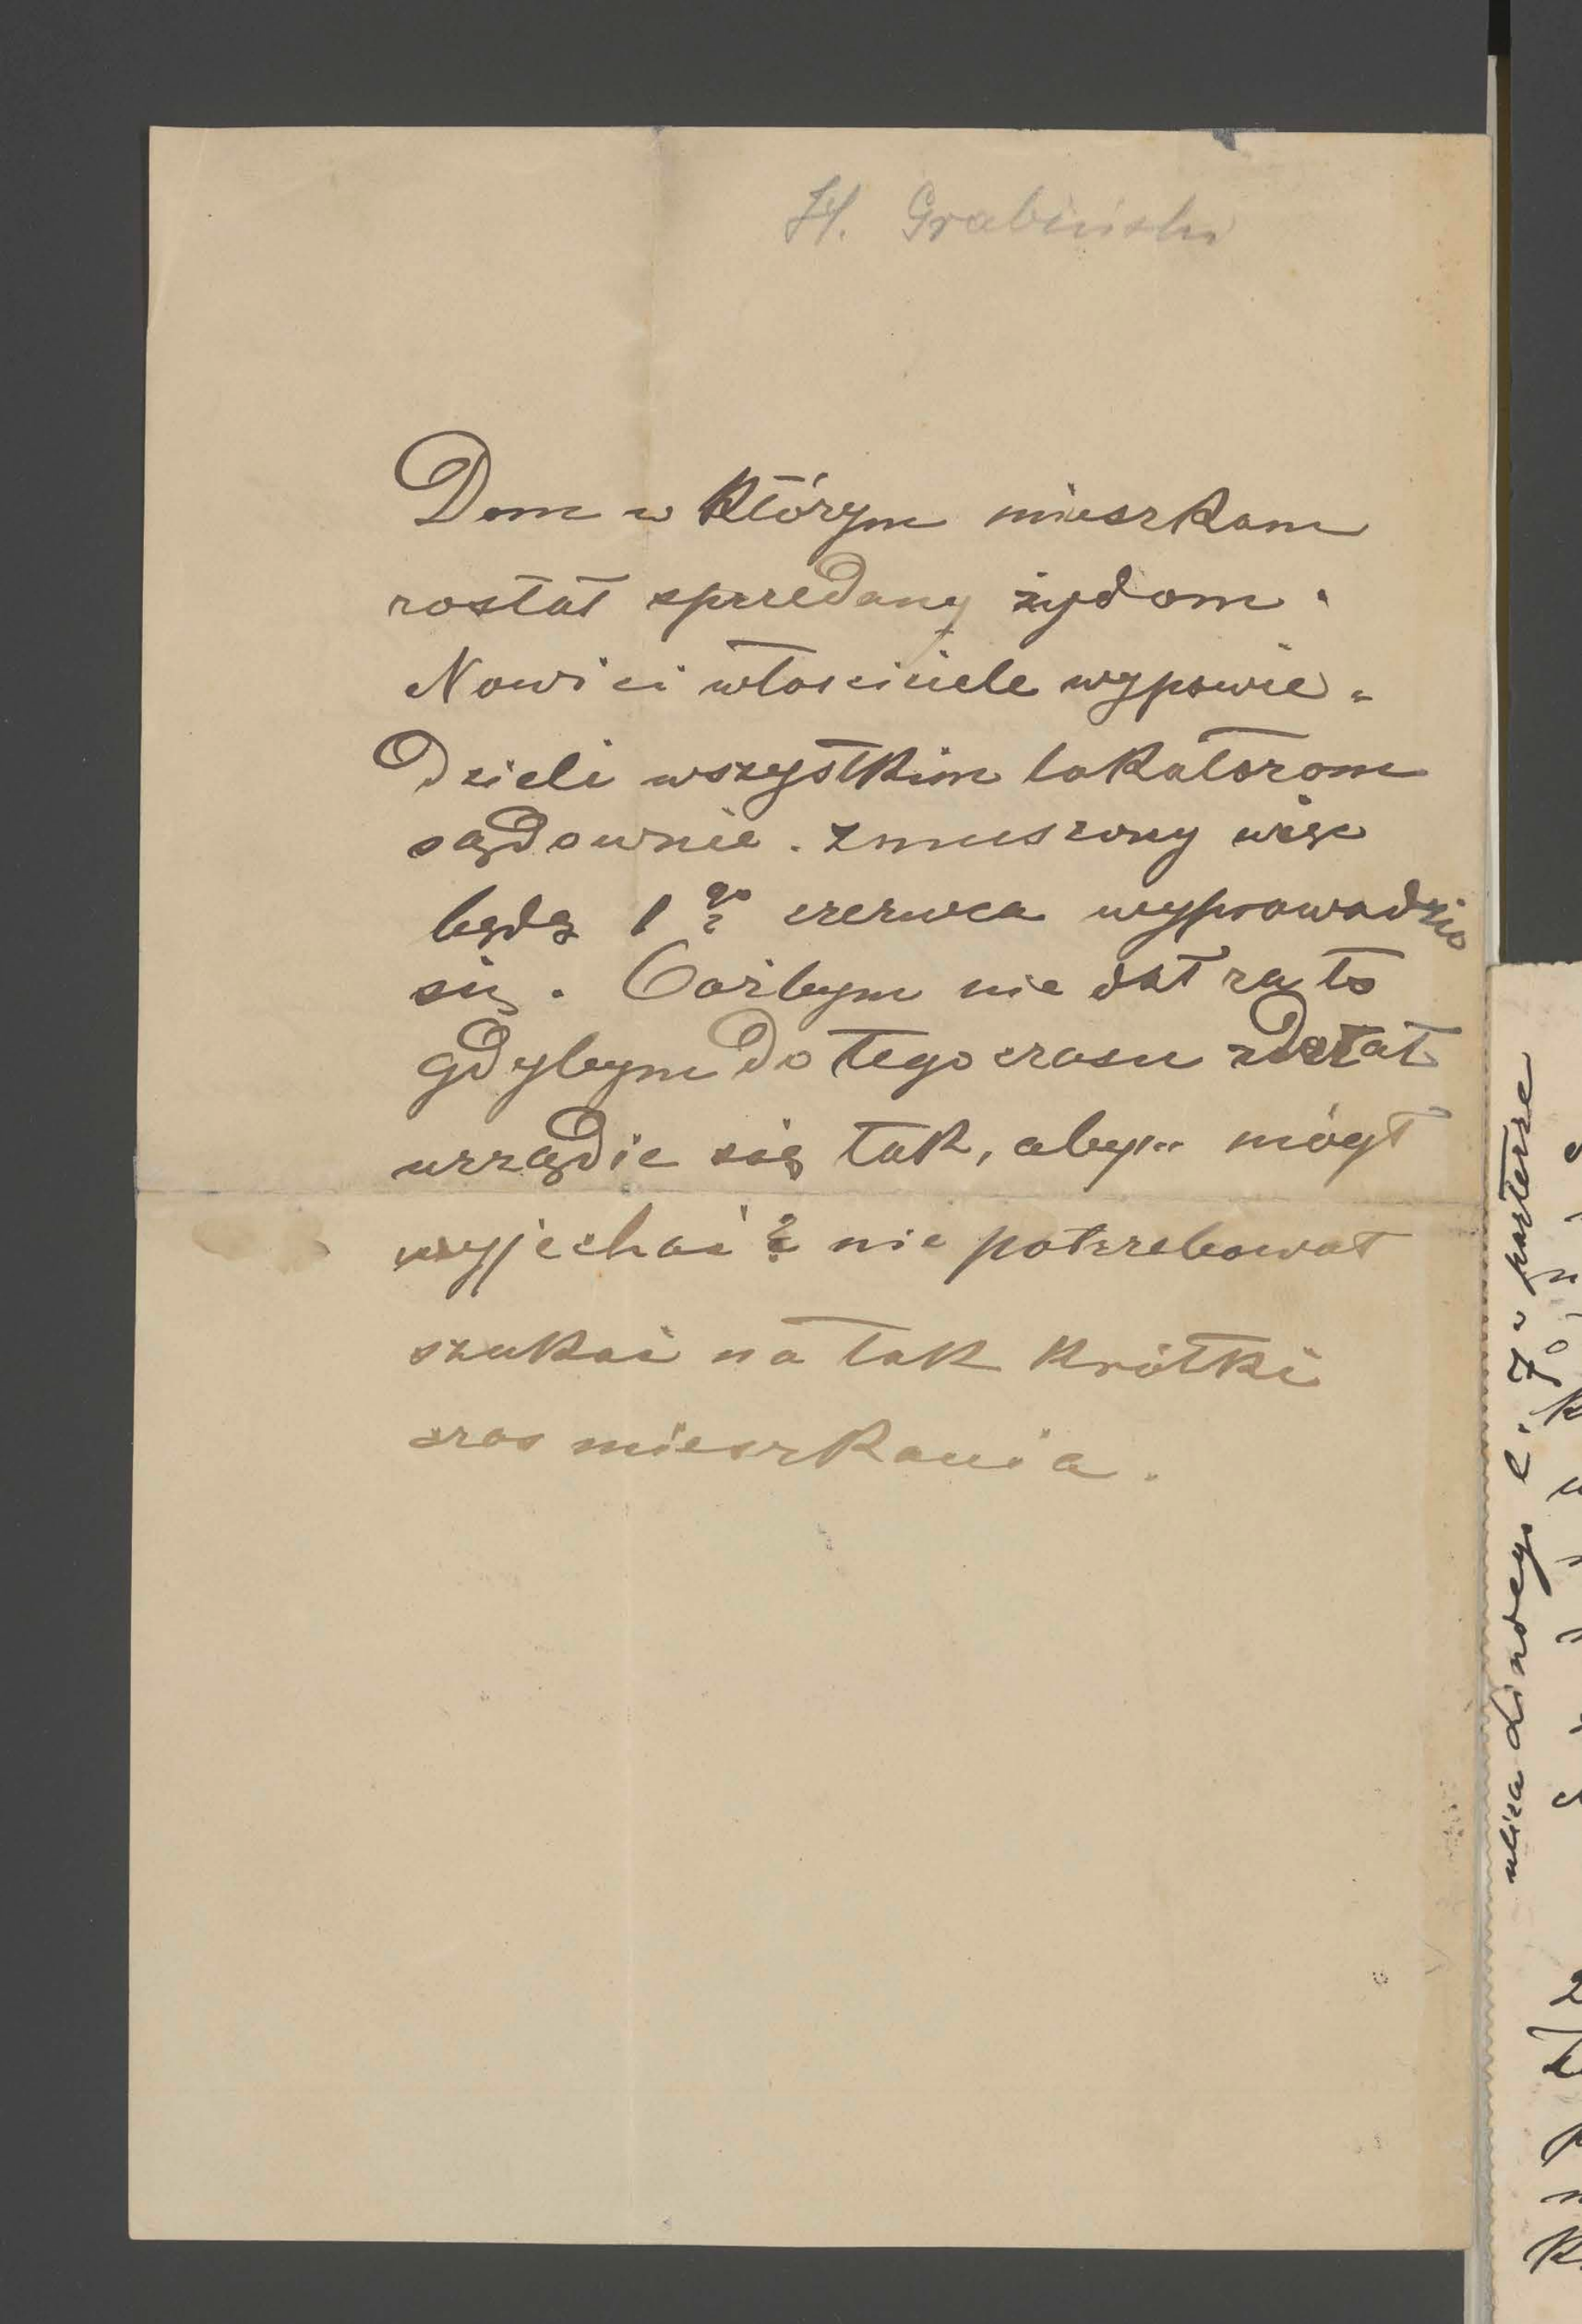 H. Grabiński
Dom w którym mieszkam
został sprzedany żydom.
Nowi ci właściciele wypowie-
dzieli wszystkim lokatorom
sądownie. Zmuszony więc
będę 1go czerwca wyprowadzić
się. Cożbym nie dał za to
gdybym do tego czasu zdołał
urządzić się tak, abym mógł
wyjechać i nie potrzebował
szukać na tak krótki
czas mieszkania.
ulica Lindego l. 7 w parterze